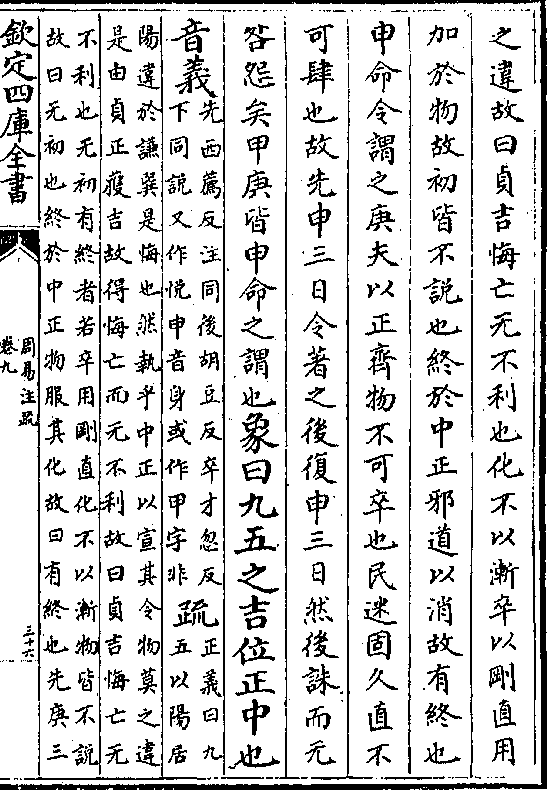 之違故曰貞吉悔亡无不利也化不以漸卒以剛直用
加於物故初皆不說也終於中正邪道以消故有終也
申命令謂之庚夫以正齊物不可卒也民迷固久直不
可肆也故先申三日令著之後復申三日然後誅而无
咎怨矣甲庚皆申命之謂也象曰九五之吉位正中也
音義
先西薦反注同後胡豆反卒才忽反
下同說又作悅申音身或作甲字非
疏
正義曰九
五以陽居
陽違於謙巽是悔也然執乎中正以宣其令物莫之違
是由貞正獲吉故得悔亡而无不利故曰貞吉悔亡无
不利也无初有終者若卒用剛直化不以漸物皆不說
故曰无初也終於中正物服其化故曰有終也先庚三
欽定四庫全書
周易注疏
卷九
三十六